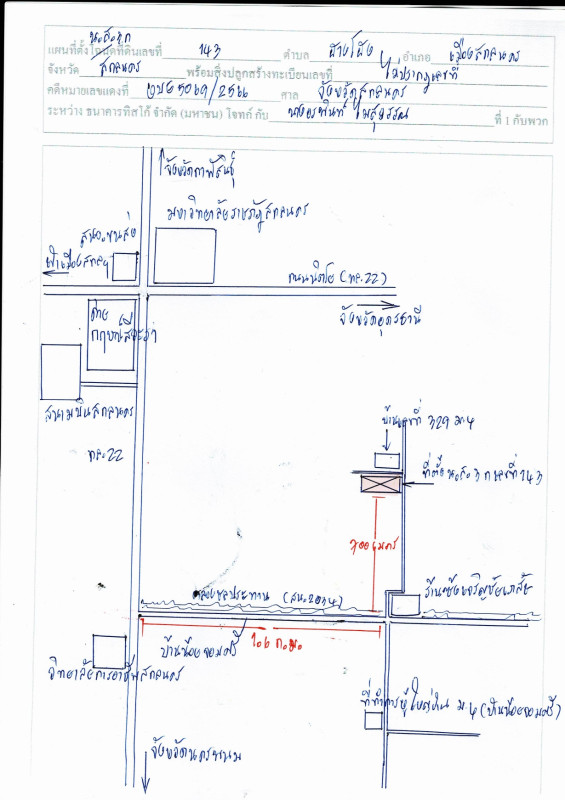 น.ส.3ก
แผนที่ตั้งโฉนดที่ดินเลขที่ 143 ตำบล ฮางโฮง อำเภอ เมืองสกลนคร
จังหวัด สกลนคร พร้อมสิ่งปลูกสร้างทะเบียนเลขที่ ไม่ปรากฏเลขที่
คดีหมายเลขแดงที่ ผบE5069/2566 ศาล จังหวัดสกลนคร
ระหว่าง ธนาคารทิสโก้ จำกัด (มหาชน) โจทก์ กับ ที่ 1 กับพวก
จังหวัดกาฬสินธุ์
มหาวิทยาลัยราชภัฏสกลนคร
สนง.ขนส่ง
เข้าเมืองสกลฯ
ถนนนิตโย (ทล.22)
จังหวัดอุดรธานี
ค่าย
กฤษณ์สีวะรา
สนามบินสกลนคร
ทล.22
บ้านเลขที่ 329 ม.4
ที่ตั้ง น.ส.3 ก เลขที่ 143
700 เมตร
ร้านเฮียเจริญชัยเภสัช
คลองชลประทาน (สน.2034)
1.6 ก.ม.
บ้านน้อยจอมศรี
วิทยาลัยการอาชีพสกลนคร
ที่ทำการผู้ใหญ่บ้าน ม.4 (บ้านน้อยจอมศรี)
จังหวัดนครพนม